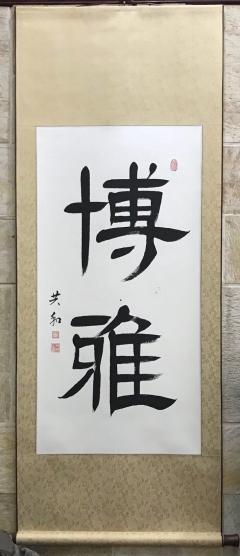 博雅
共和